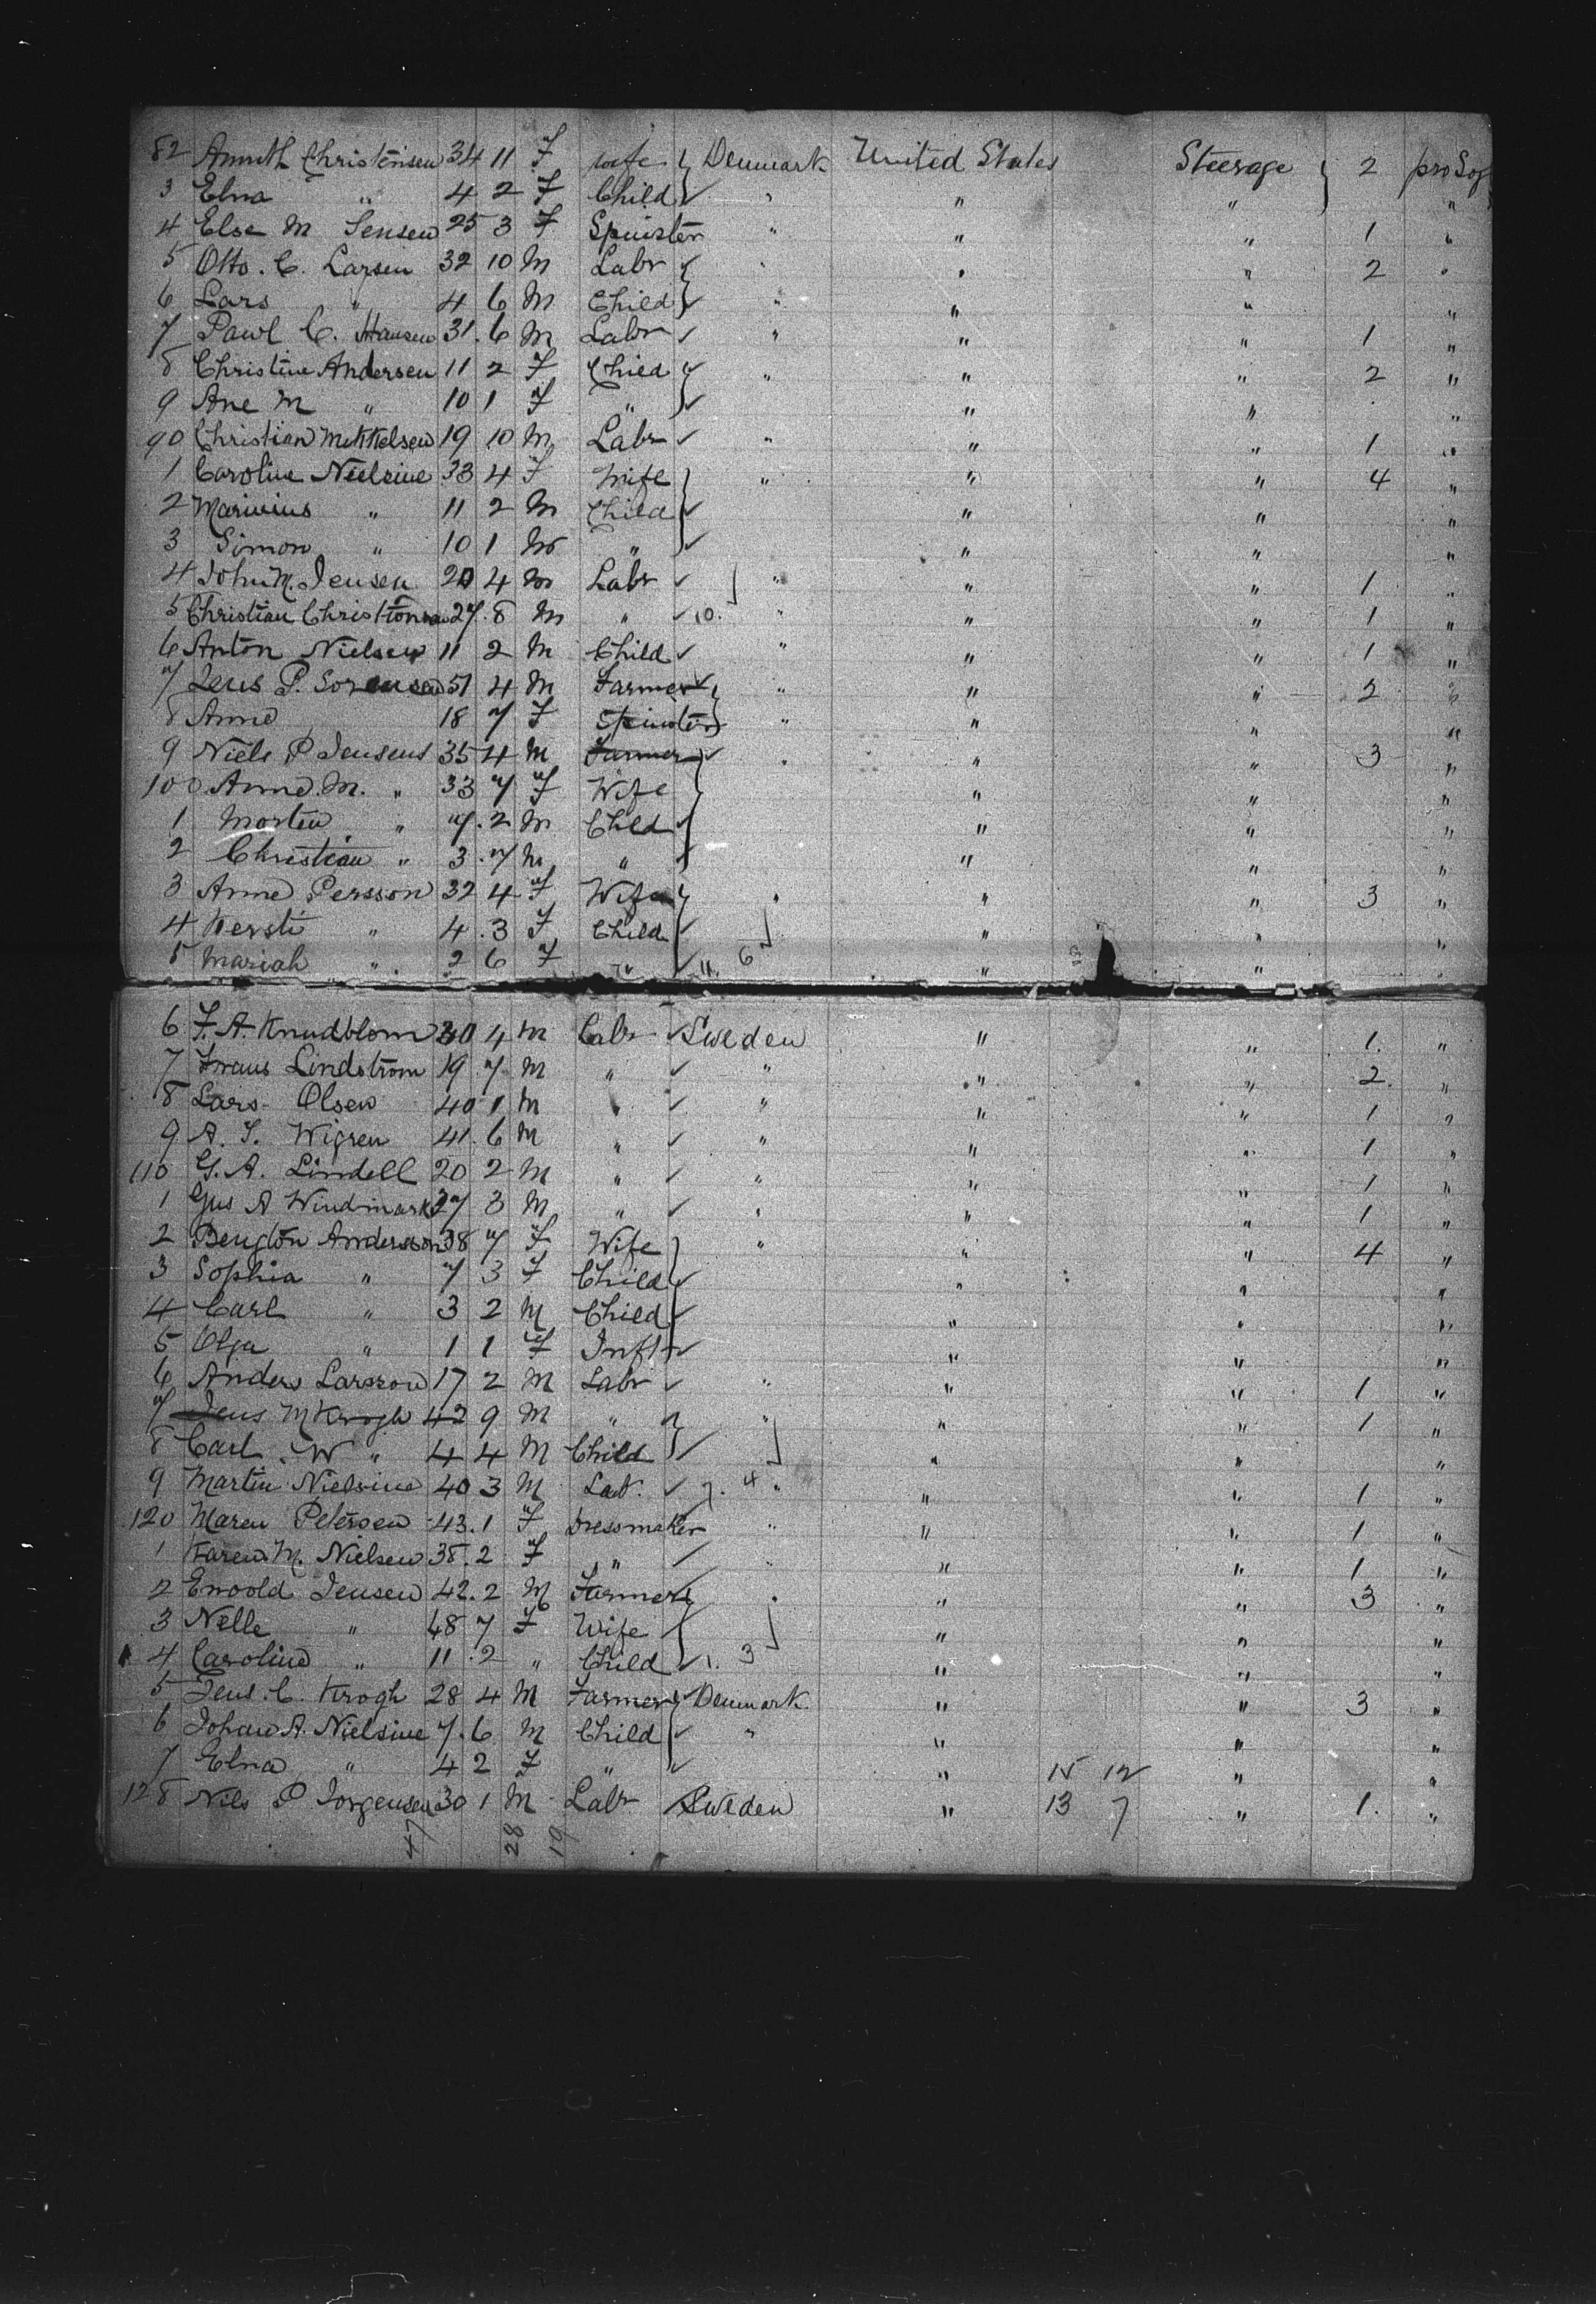 82 Annith Christensen 34 11 F wife } Denmark United States Steerage } 2 pro Sog
3 Elna " 4 2 F Child " " " "
4 Else M Jensen 25 3 F Spinster " " " 1 "
5 Otto. C. Larsen 32 10 M Labr " " " 2 "
6 Lars " 4 6 M Child " " " "
7 Pawl C. Hansen 31. 6 M Labr " " " 1 "
8 Christine Andersen 11 2 F Child " " " 2 "
9 Ane M " 10 1 F " " " "
90 Christian Mikkelsen 19 10 M Labr " " " 1 "
1 Caroline Nielsine 33 4 F Wife " " " 4 "
2 Marinius " 11 2 M Child " " "
3 Simon " 10 1 M " " " "
4 John M. Jensen 20 4 M Labr " " " 1 "
5 Christian Christensen 27. 8 M " 10. " " " 1 "
6 Anton Nielsen 11 2 M Child " " " 1 "
7 Jens P. Sorensen 51 4 M Farmer " " " 2 "
8 Anne 18 7 F Spinster " " " "
9 Niels P Jensens 35 4 M Farmer " " " 3 "
100 Anne. M. " 33 7 F Wife " " "
1 Morten " 7. 2 M Child " " "
2 Christian " 3. 7 M " " " "
3 Anne Persson 32 4 F Wife " " " 3 "
4 Kersti " 4. 3 F Child " " "
5 Mariah " 2 6 F " 11. 6 " " "
6 F. A. Knudblom 30 4 M Labr Sweden " " 1. "
7 Frans Lindstrom 19 7 M " " " " 2. "
8 Lars Olsen 40 1 M " " " " 1 "
9 A. S. Wigren 41. 6 M " " " " 1 "
110 G. A. Lindell 20 2 M " " " " 1 "
1 Gus A Windmark 27 3 M " " " " 1 "
2 Bengton Andersson 38 7 F Wife " " " 4 "
3 Sophia " 7 3 F Child " " "
4 Carl " 3 2 M Child " " "
5 Olga " 1 1 F Inft " " "
6 Anders Larsson 17 2 M Labr " " " 1 "
7 Jens M Krogh 42 9 M " " " " 1 "
8 Carl. W " 4 4 M Child " " "
9 Martin Nielsine 40 3 M Lab. 7. 4 " " " 1 "
120 Maren Petersen 43. 1 F Dressmaker " " " 1 "
1 Karen. M. Nielsen 38. 2 F " " " " 1 "
2 Ewold Jensen 42. 2 M Farmer " " " 3 "
3 Nelle " 48 7 F Wife " " "
4 Caroline " 11. 2 " Child 1. 3 " " "
5 Jens. C. Krogh 28 4 M Farmer Denmark " " 3 "
6 Johan A. Nielsine 7. 6 M Child " " " "
7 Elna " 4 2 F " " 15 12 " "
128 Nils P Jorgensen 30 1 M Labr Sweden " 13 7 " 1. "
47 28 19